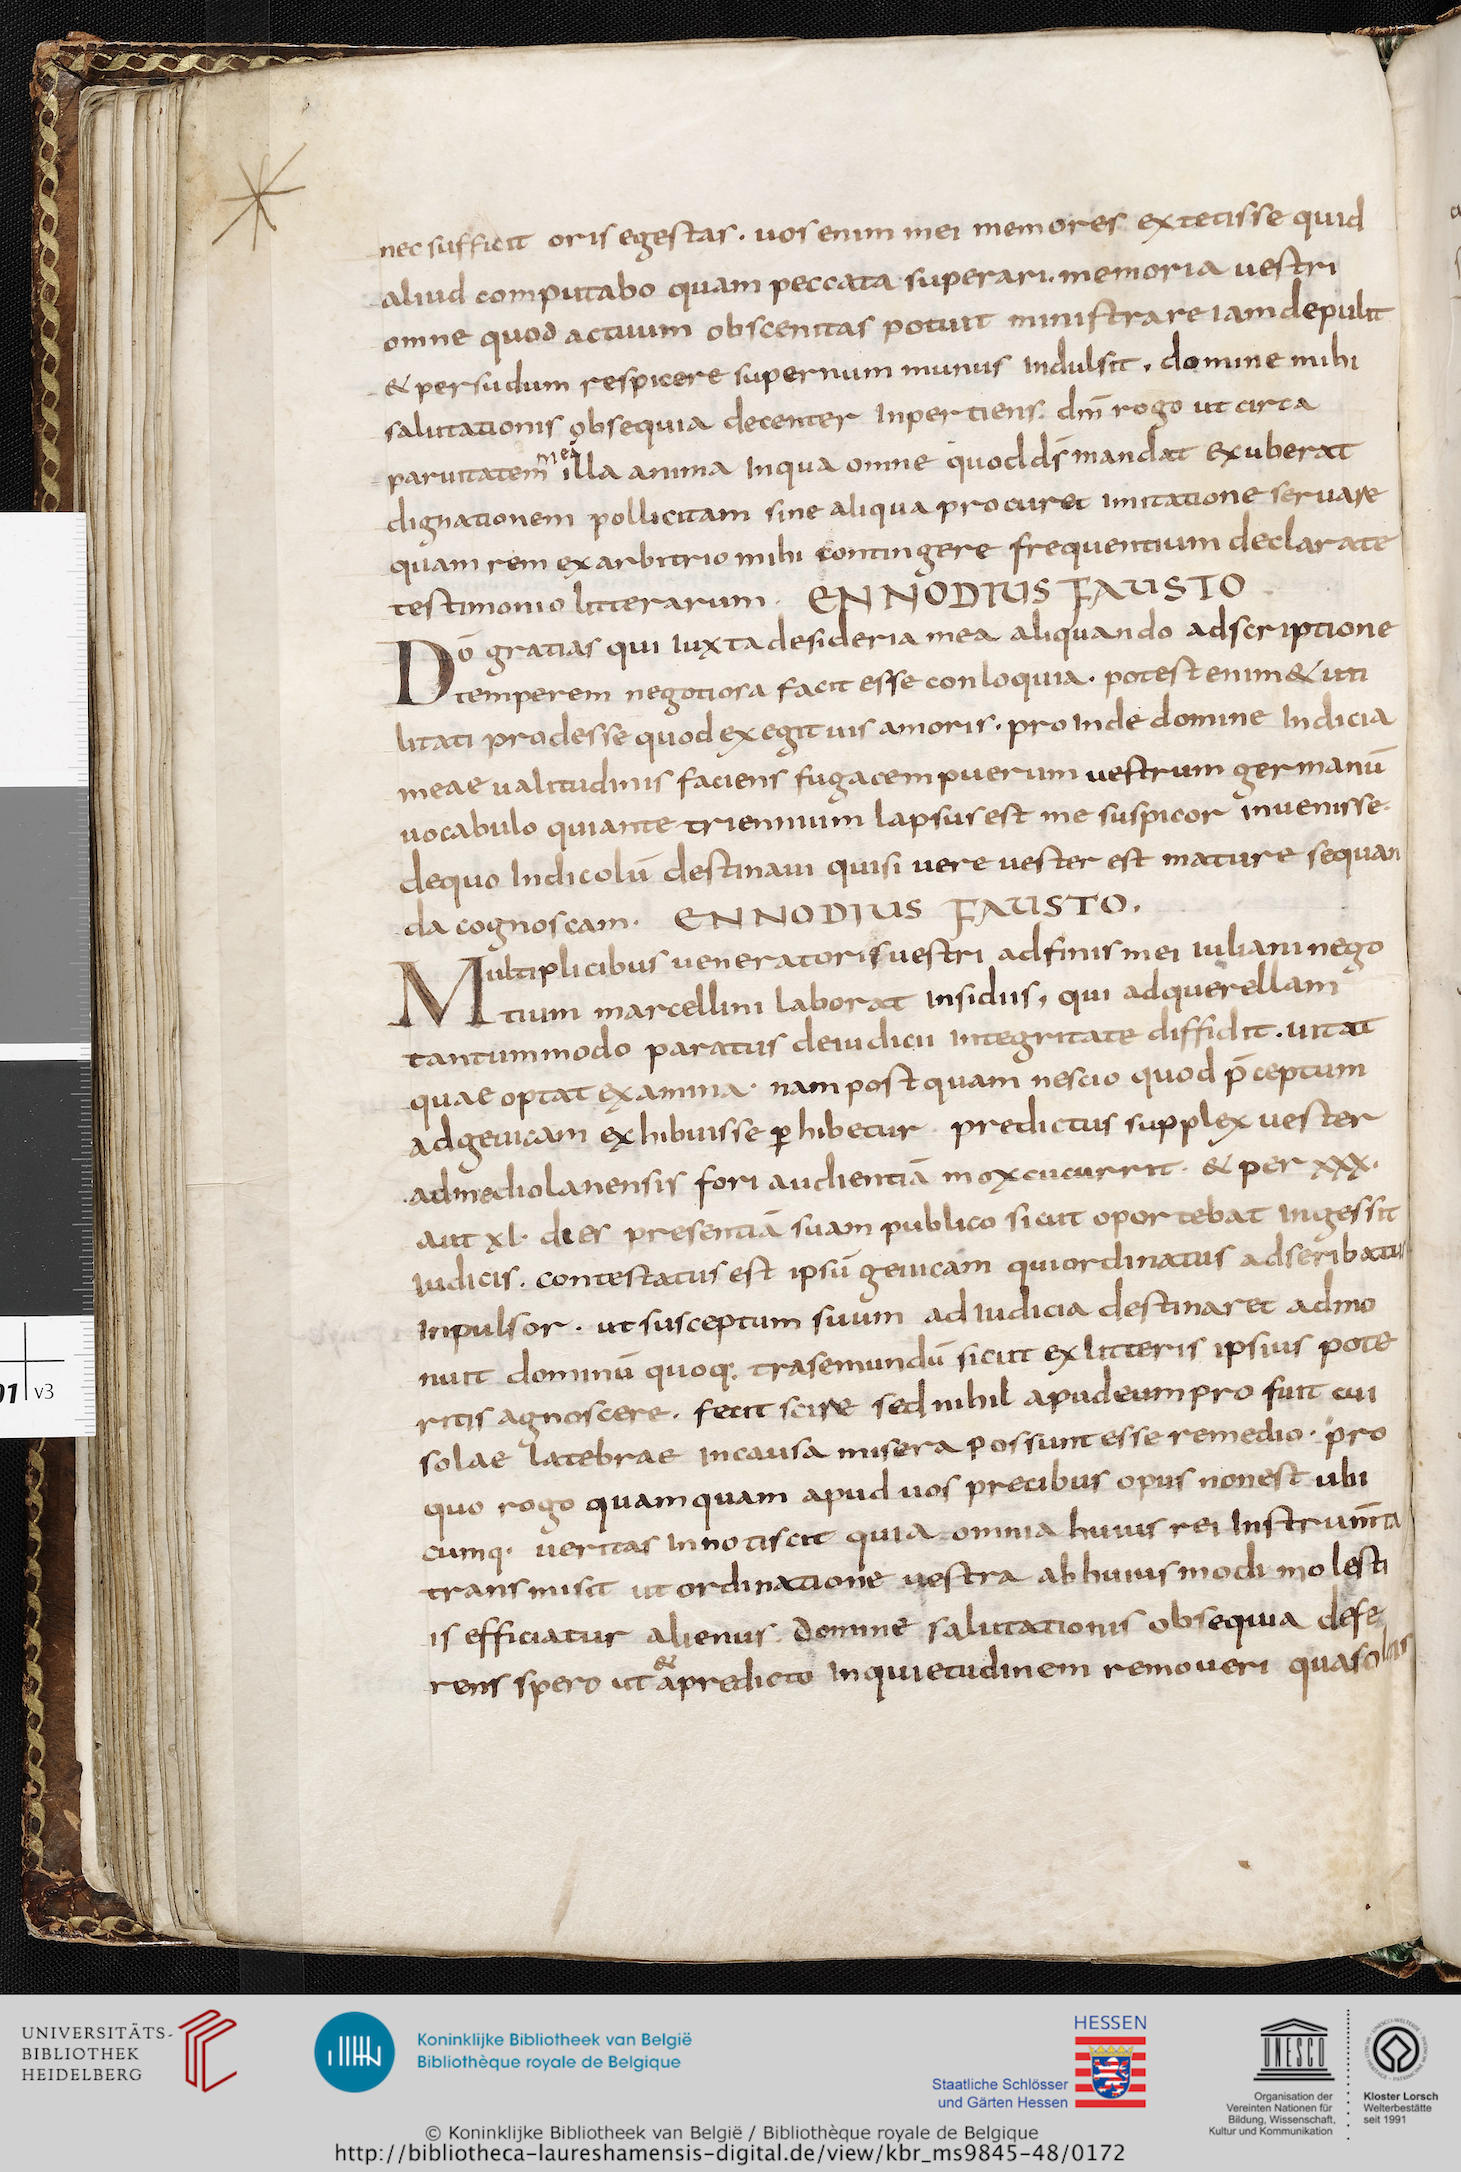 nec sufficit oris egestas. uos enim mei memores extetisse quid
aliud computabo quam peccata superari. memoria uestri
omne quod actuum obscenitas potuit ministrare iam depulit
& per sudum respicere supernum munus indulsit. domine mihi
salutationis obsequia decenter inpertiens. dm̄ rogo ut circa
paruitatem meā illa anima inqua omne quod ds̄ mandat exuberat
dignationem pollicitam sine aliqua procuret imitatione seruare
quam rem ex arbitrio mihi contingere frequentium declarate
testimonio litterarum. ENNODIUS FAUSTO
Dō gratias qui iuxta desideria mea aliquando adscriptione
temperem negotiosa facit esse conloquia. potest enim & uti
litati prodesse quod exegit uis amoris. proinde domine indicia
meae ualitudinis faciens fugacem puerum uestrum germanū
uocabulo qui ante triennium lapsus est me suspicor inuenisse.
dequo indicolū destinaui quisi uere uester est mature sequan
da cognoscam. ENNODIUS FAUSTO.
Multiplicibus ueneratoris uestri adfinis mei iuliani nego
tium marcellini laborat insidiis, qui adquerellam
tantummodo paratus deiudicii integritate diffidit. uitat
quae optat examina. nam postquam nescio quod p̄ceptum
adgeuicam exhibuisse ꝑhibetur. predictus supplex uester
admediolanensis fori audientiā mox cucurrit. & per xxx.
aut xl. dies presentiā suam publico sicut oportebat ingessit
iudicis. contestatus est ipsū geuicam qui ordinatus adseribatur
inpulsor. ut susceptum suum ad iudicia destinaret admo
nuit dominū quoq; trasemundū sicut ex litteris ipsius pote
ritis agnoscere. fecit scire sed nihil apud eum pro fuit cui
solae latebrae incausa misera possunt esse remedio. pro
quo rogo quamquam apud uos precibus opus nonest ubi
cumq. ueritas innotiscit quia omnia huius rei instrum̄ta
transmisit ut ordinatione uestra abhuiusmodi molesti
is efficiatur alienus. domine salutationis obsequia defe
rens spero ut & apredicto inquietudinem remoueri qua solus
01 v3
UNIVERSITÄTS-
BIBLIOTHEK
HEIDELBERG
Koninklijke Bibliotheek van België
Bibliothèque royale de Belgique
HESSEN
Staatliche Schlösser
und Gärten Hessen
UNESCO
Organisation der
Vereinten Nationen für
Bildung, Wissenschaft,
Kultur und Kommunikation
Kloster Lorsch
Welterbestätte
seit 1991
© Koninklijke Bibliotheek van België / Bibliothèque royale de Belgique
http://bibliotheca-laureshamensis-digital.de/view/kbr_ms9845-48/0172